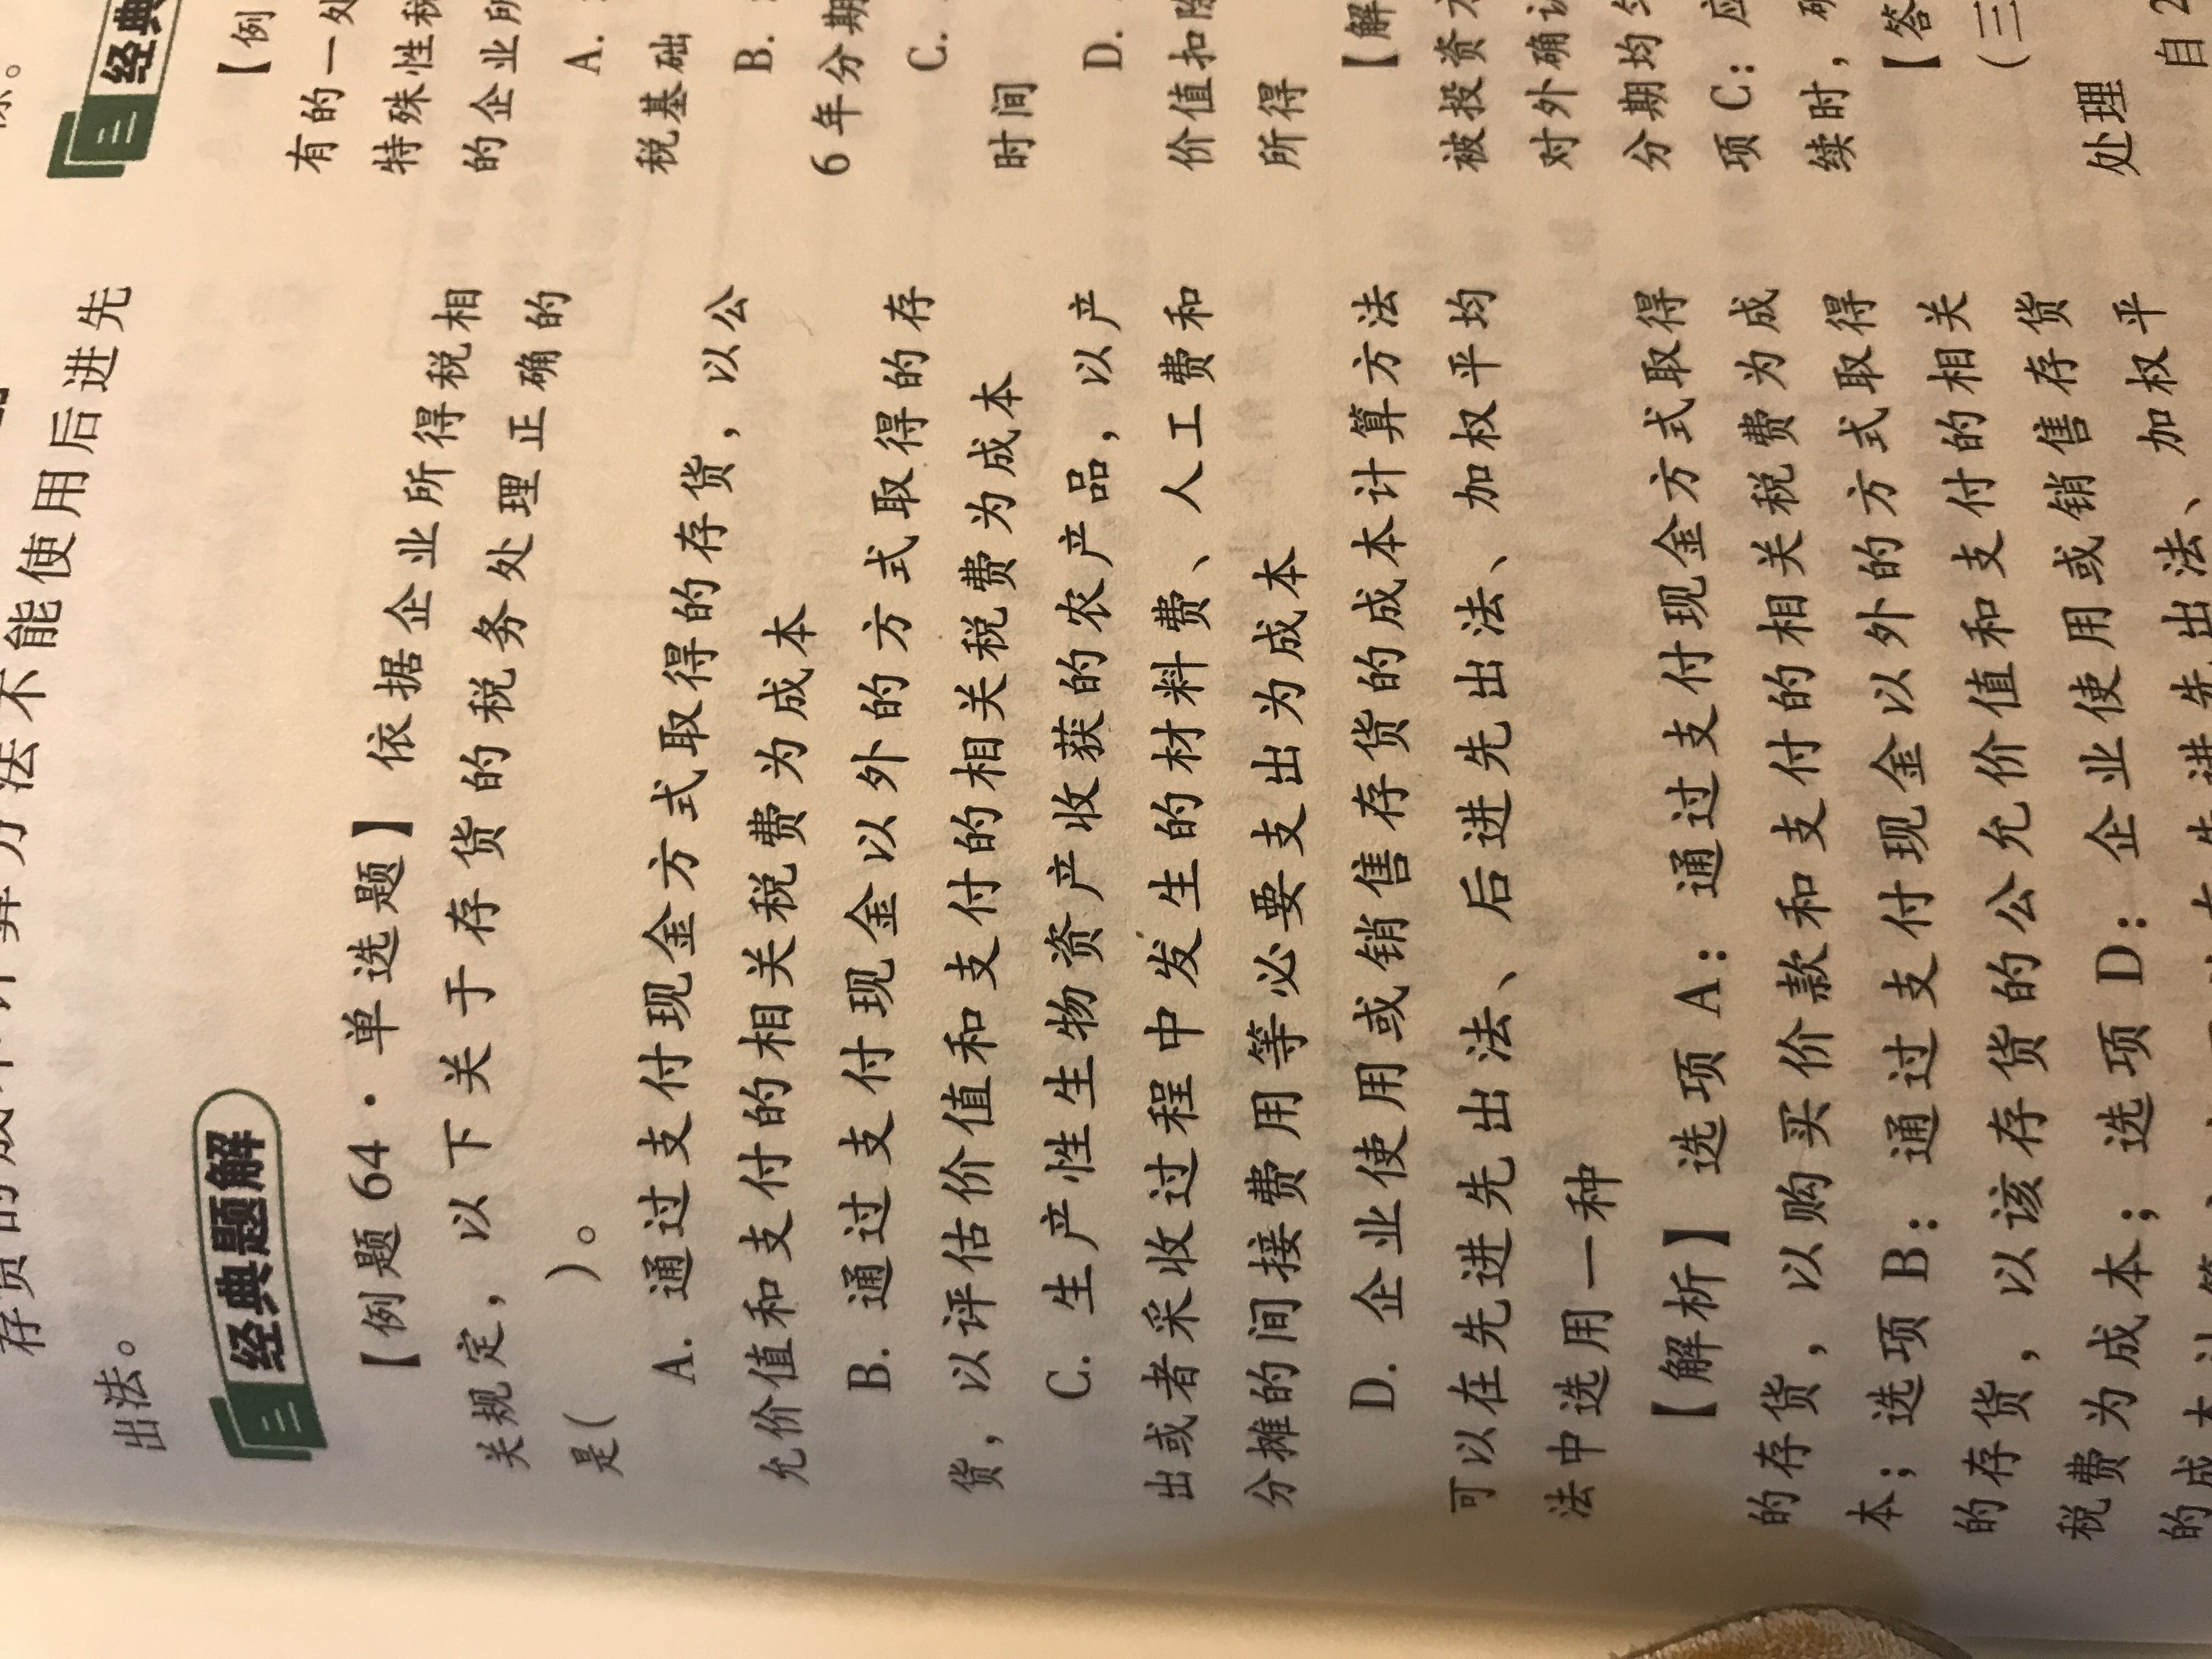 存货的成本计算方法不能使用后进先
出法。
经典题解
【例题 64·单选题】 依据企业所得税相
关规定，以下关于存货的税务处理正确的
是(    )。
A. 通过支付现金方式取得的存货，以公
允价值和支付的相关税费为成本
B. 通过支付现金以外的方式取得的存
货，以评估价值和支付的相关税费为成本
C. 生产性生物资产收获的农产品，以产
出或者采收过程中发生的材料费、人工费和
分摊的间接费用等必要支出为成本
D. 企业使用或销售存货的成本计算方法
可以在先进先出法、后进先出法、加权平均
法中选用一种
【解析】 选项 A：通过支付现金方式取得
的存货，以购买价款和支付的相关税费为成
本；选项 B：通过支付现金以外的方式取得
的存货，以该存货的公允价值和支付的相关
税费为成本；选项 D：企业使用或销售存货
的成本计算方法，可以在先进先出法、加权平
经典
【例
有的一处
特殊性税
的企业所
A.
税基础
B.
6 年分期
C.
时间
D.
价值扣除
所得
【解
被投资
对外确认
分期均匀
项 C：应
续时，
【答
（三
处理
自 2